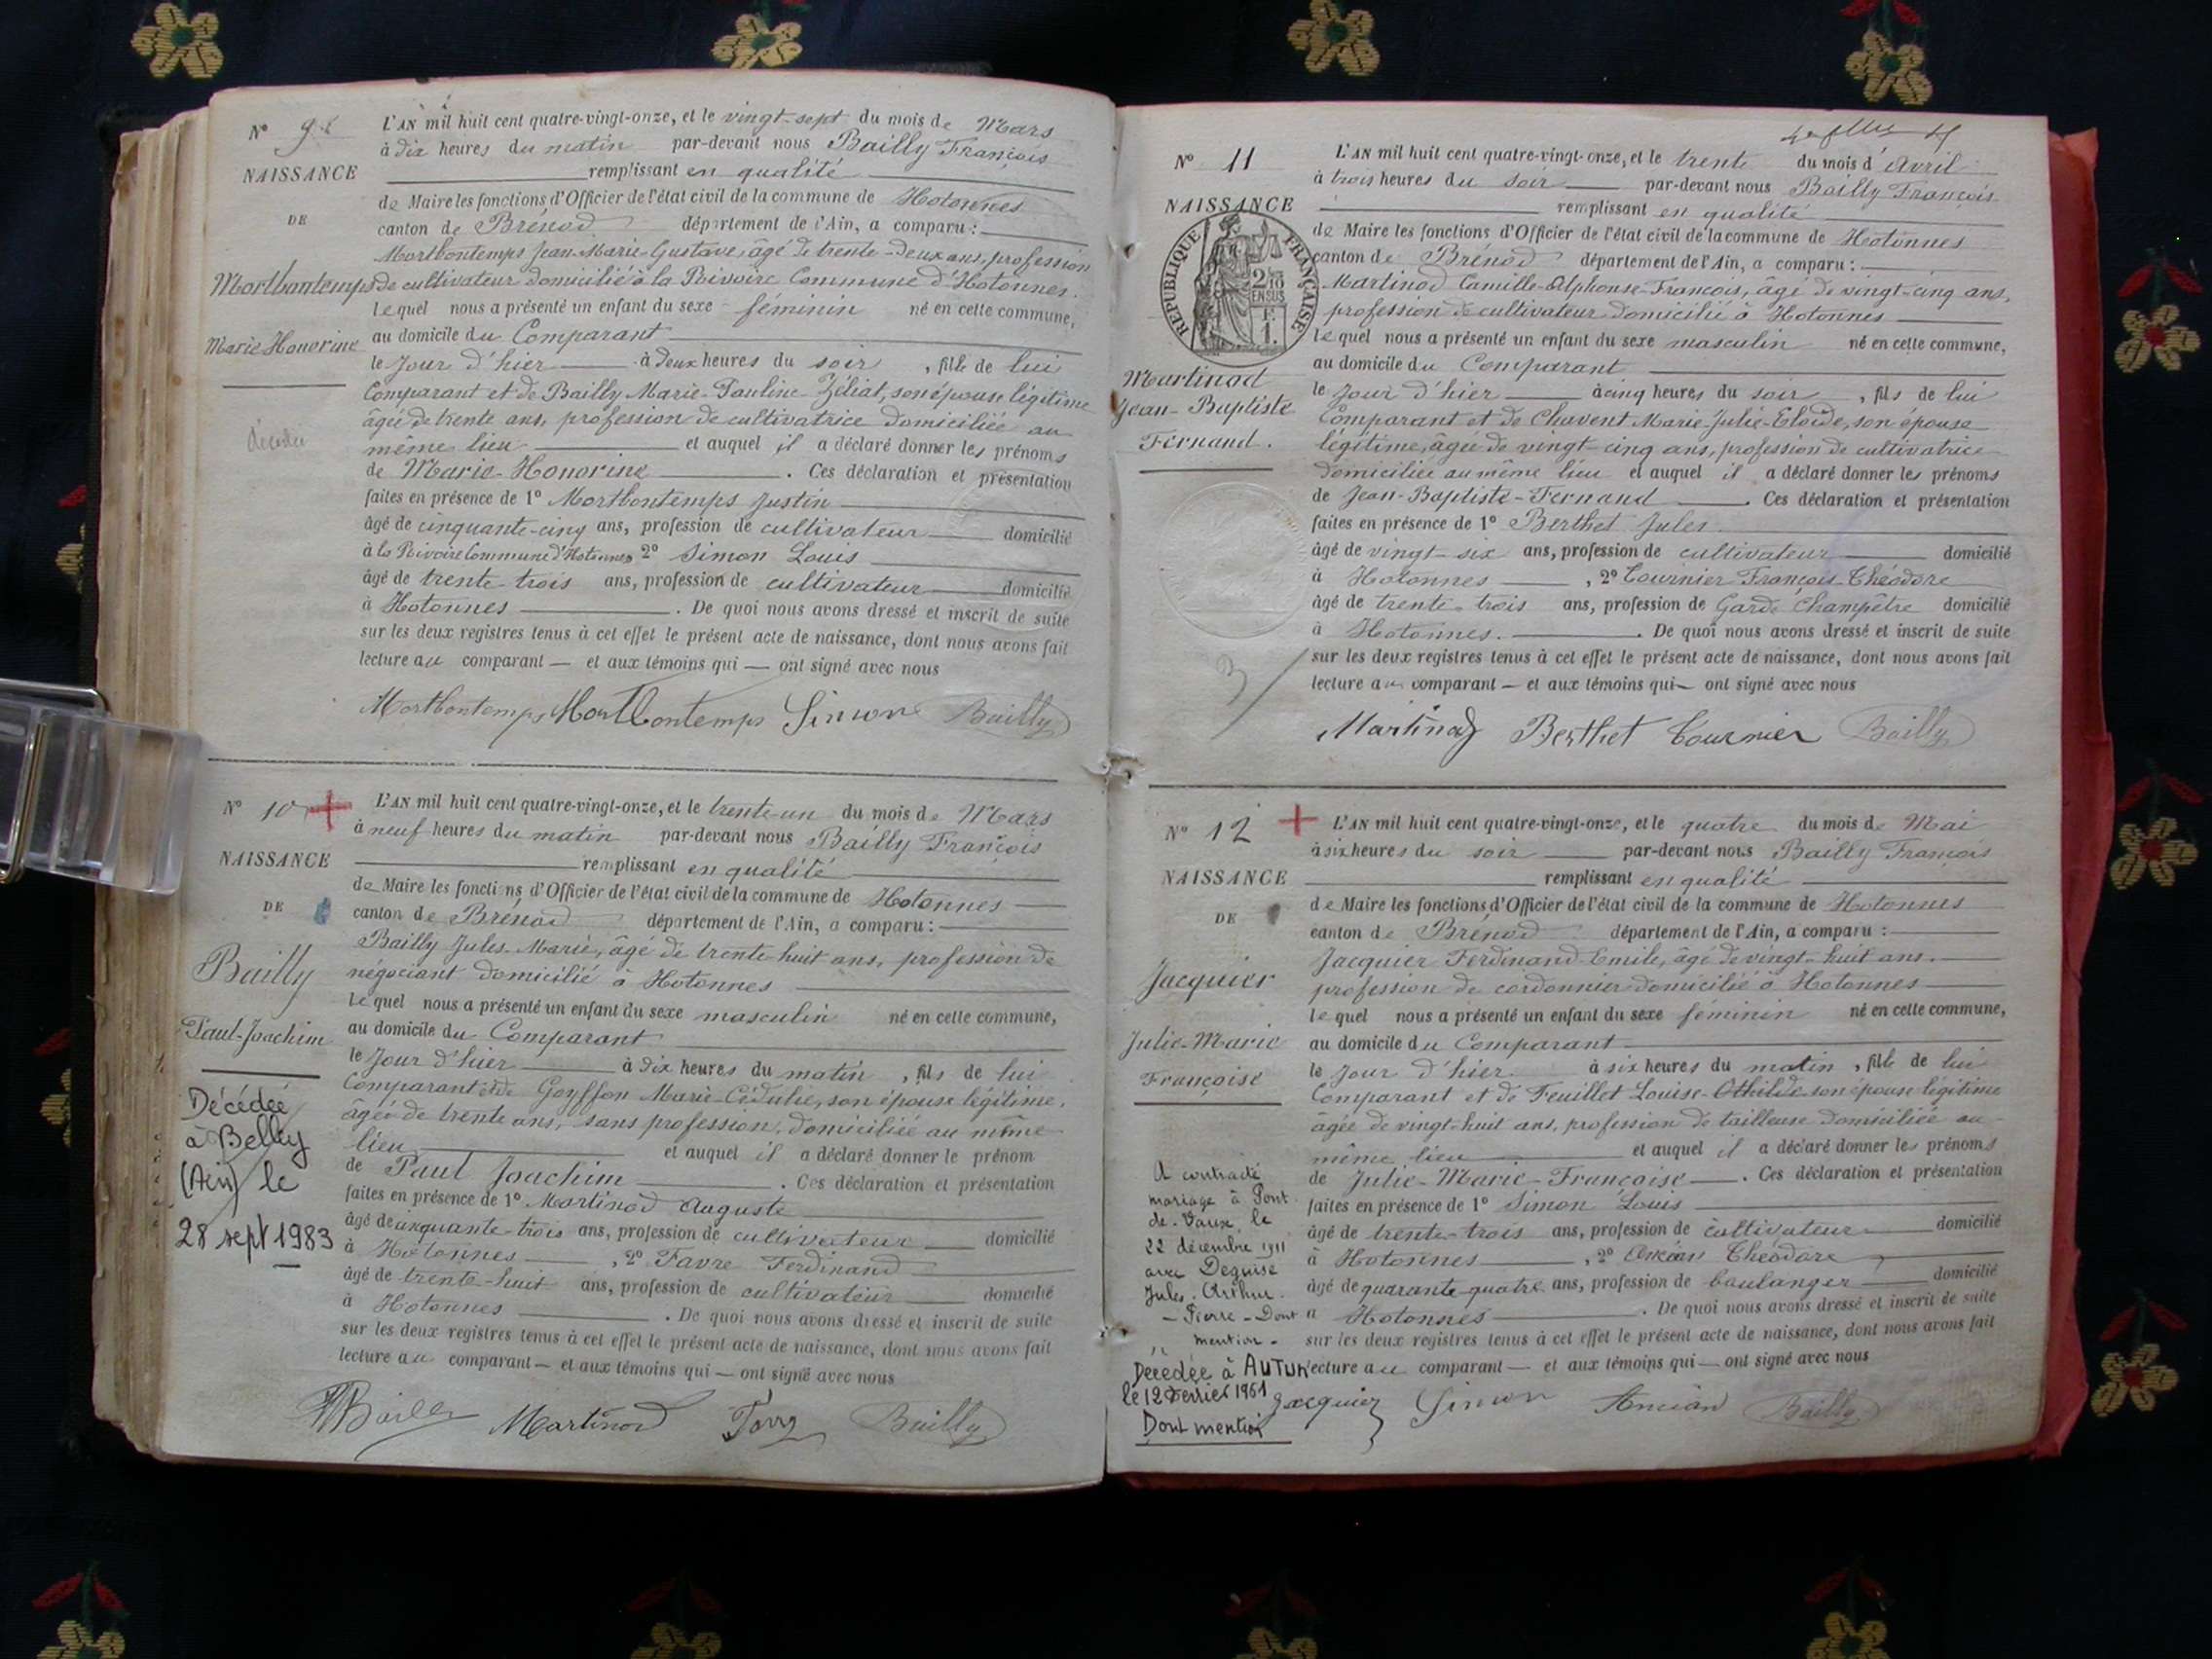 N° 9
NAISSANCE
DE
Mortbontemps
Marie Honorine
décédée
L'AN mil huit cent quatre-vingt-onze, et le vingt-sept du mois de Mars
à dix heures du matin par-devant nous Bailly François
remplissant en qualité
de Maire les fonctions d'Officier de l'état civil de la commune de Hotonnes
canton de Brénod département de l'Ain, a comparu :
Mortbontemps Jean-Marie-Gustave, âgé de trente-deux ans, profession
de cultivateur domicilié à la Rivoire Commune d'Hotonnes.
lequel nous a présenté un enfant du sexe féminin né en cette commune,
au domicile du Comparant
le Jour d'hier à deux heures du soir, fille de lui
Comparant et de Bailly Marie-Pauline-Zéliat, son épouse légitime
âgée de trente ans, profession de cultivatrice domiciliée au
même lieu et auquel il a déclaré donner les prénoms
de Marie-Honorine. Ces déclaration et présentation
faites en présence de 1° Mortbontemps Justin
âgé de cinquante-cinq ans, profession de cultivateur domicilié
à la Rivoire Commune d'Hotonnes 2° Simon Louis
âgé de trente-trois ans, profession de cultivateur domicilié
à Hotonnes. De quoi nous avons dressé et inscrit de suite
sur les deux registres tenus à cet effet le présent acte de naissance, dont nous avons fait
lecture au comparant — et aux témoins qui — ont signé avec nous
Mortbontemps Mortbontemps Simon Bailly
N° 10 +
NAISSANCE
DE
Bailly
Paul-Joachim
Décédée
à Belley
(Ain) le
28 sept 1983
L'AN mil huit cent quatre-vingt-onze, et le trente-un du mois de Mars
à neuf heures du matin par-devant nous Bailly François
remplissant en qualité
de Maire les fonctions d'Officier de l'état civil de la commune de Hotonnes
canton de Brénod département de l'Ain, a comparu :
Bailly Jules-Marie, âgé de trente-huit ans, profession de
négociant domicilié à Hotonnes
lequel nous a présenté un enfant du sexe masculin né en cette commune,
au domicile du Comparant
le Jour d'hier à dix heures du matin, fils de lui
Comparant et de Goyffon Marie-Cédulie, son épouse légitime,
âgée de trente ans, sans profession, domiciliée au même
lieu et auquel il a déclaré donner le prénom
de Paul Joachim. Ces déclaration et présentation
faites en présence de 1° Martinod Auguste
âgé de cinquante-trois ans, profession de cultivateur domicilié
à Hotonnes, 2° Favre Ferdinand
âgé de trente-huit ans, profession de cultivateur domicilié
à Hotonnes. De quoi nous avons dressé et inscrit de suite
sur les deux registres tenus à cet effet le présent acte de naissance, dont nous avons fait
lecture au comparant — et aux témoins qui — ont signé avec nous
Bailly Martinod Bailly
N° 11
NAISSANCE
RÉPUBLIQUE FRANÇAISE
2/10 EN SUS
F. 1.
Martinod
Jean-Baptiste
Fernand.
L'AN mil huit cent quatre-vingt-onze, et le trente du mois d'Avril
à trois heures du soir par-devant nous Bailly François
remplissant en qualité
de Maire les fonctions d'Officier de l'état civil de la commune de Hotonnes
canton de Brénod département de l'Ain, a comparu :
Martinod Camille-Alphonse-François, âgé de vingt-cinq ans,
profession de cultivateur domicilié à Hotonnes
lequel nous a présenté un enfant du sexe masculin né en cette commune,
au domicile du Comparant
le Jour d'hier à cinq heures du soir, fils de lui
Comparant et de Chavent Marie-Julie-Eloïde, son épouse
légitime, âgée de vingt-cinq ans, profession de cultivatrice
domiciliée au même lieu et auquel il a déclaré donner les prénoms
de Jean-Baptiste-Fernand. Ces déclaration et présentation
faites en présence de 1° Berthet Jules
âgé de vingt-six ans, profession de cultivateur domicilié
à Hotonnes, 2° Tournier François-Théodore
âgé de trente-trois ans, profession de Garde Champêtre domicilié
à Hotonnes. De quoi nous avons dressé et inscrit de suite
sur les deux registres tenus à cet effet le présent acte de naissance, dont nous avons fait
lecture au comparant — et aux témoins qui — ont signé avec nous
Martinod Berthet Tournier Bailly
N° 12 +
NAISSANCE
DE
Jacquier
Julie-Marie
Françoise
A contracté
mariage à Pont
de-Vaux, le
22 décembre 1911
avec Deguise
Jules-Arthur.
-Pierre-Dont
mention-
Décédée à AUTUN
le 12 Février 1961
Dont mention
L'AN mil huit cent quatre-vingt-onze, et le quatre du mois de Mai
à six heures du soir par-devant nous Bailly François
remplissant en qualité
de Maire les fonctions d'Officier de l'état civil de la commune de Hotonnes
canton de Brénod département de l'Ain, a comparu :
Jacquier Ferdinand-Emile, âgé de vingt-huit ans.
profession de cordonnier domicilié à Hotonnes
lequel nous a présenté un enfant du sexe féminin né en cette commune,
au domicile du Comparant
le Jour d'hier à six heures du matin, fille de lui
Comparant et de Feuillet Louise-Othilde son épouse légitime
âgée de vingt-huit ans, profession de tailleuse domiciliée au
même lieu et auquel il a déclaré donner les prénoms
de Julie-Marie-Françoise. Ces déclaration et présentation
faites en présence de 1° Simon Louis
âgé de trente-trois ans, profession de cultivateur domicilié
à Hotonnes, 2° Ancian Théodore
âgé de quarante-quatre ans, profession de boulanger domicilié
à Hotonnes. De quoi nous avons dressé et inscrit de suite
sur les deux registres tenus à cet effet le présent acte de naissance, dont nous avons fait
lecture au comparant — et aux témoins qui — ont signé avec nous
Jacquier Simon Ancian Bailly